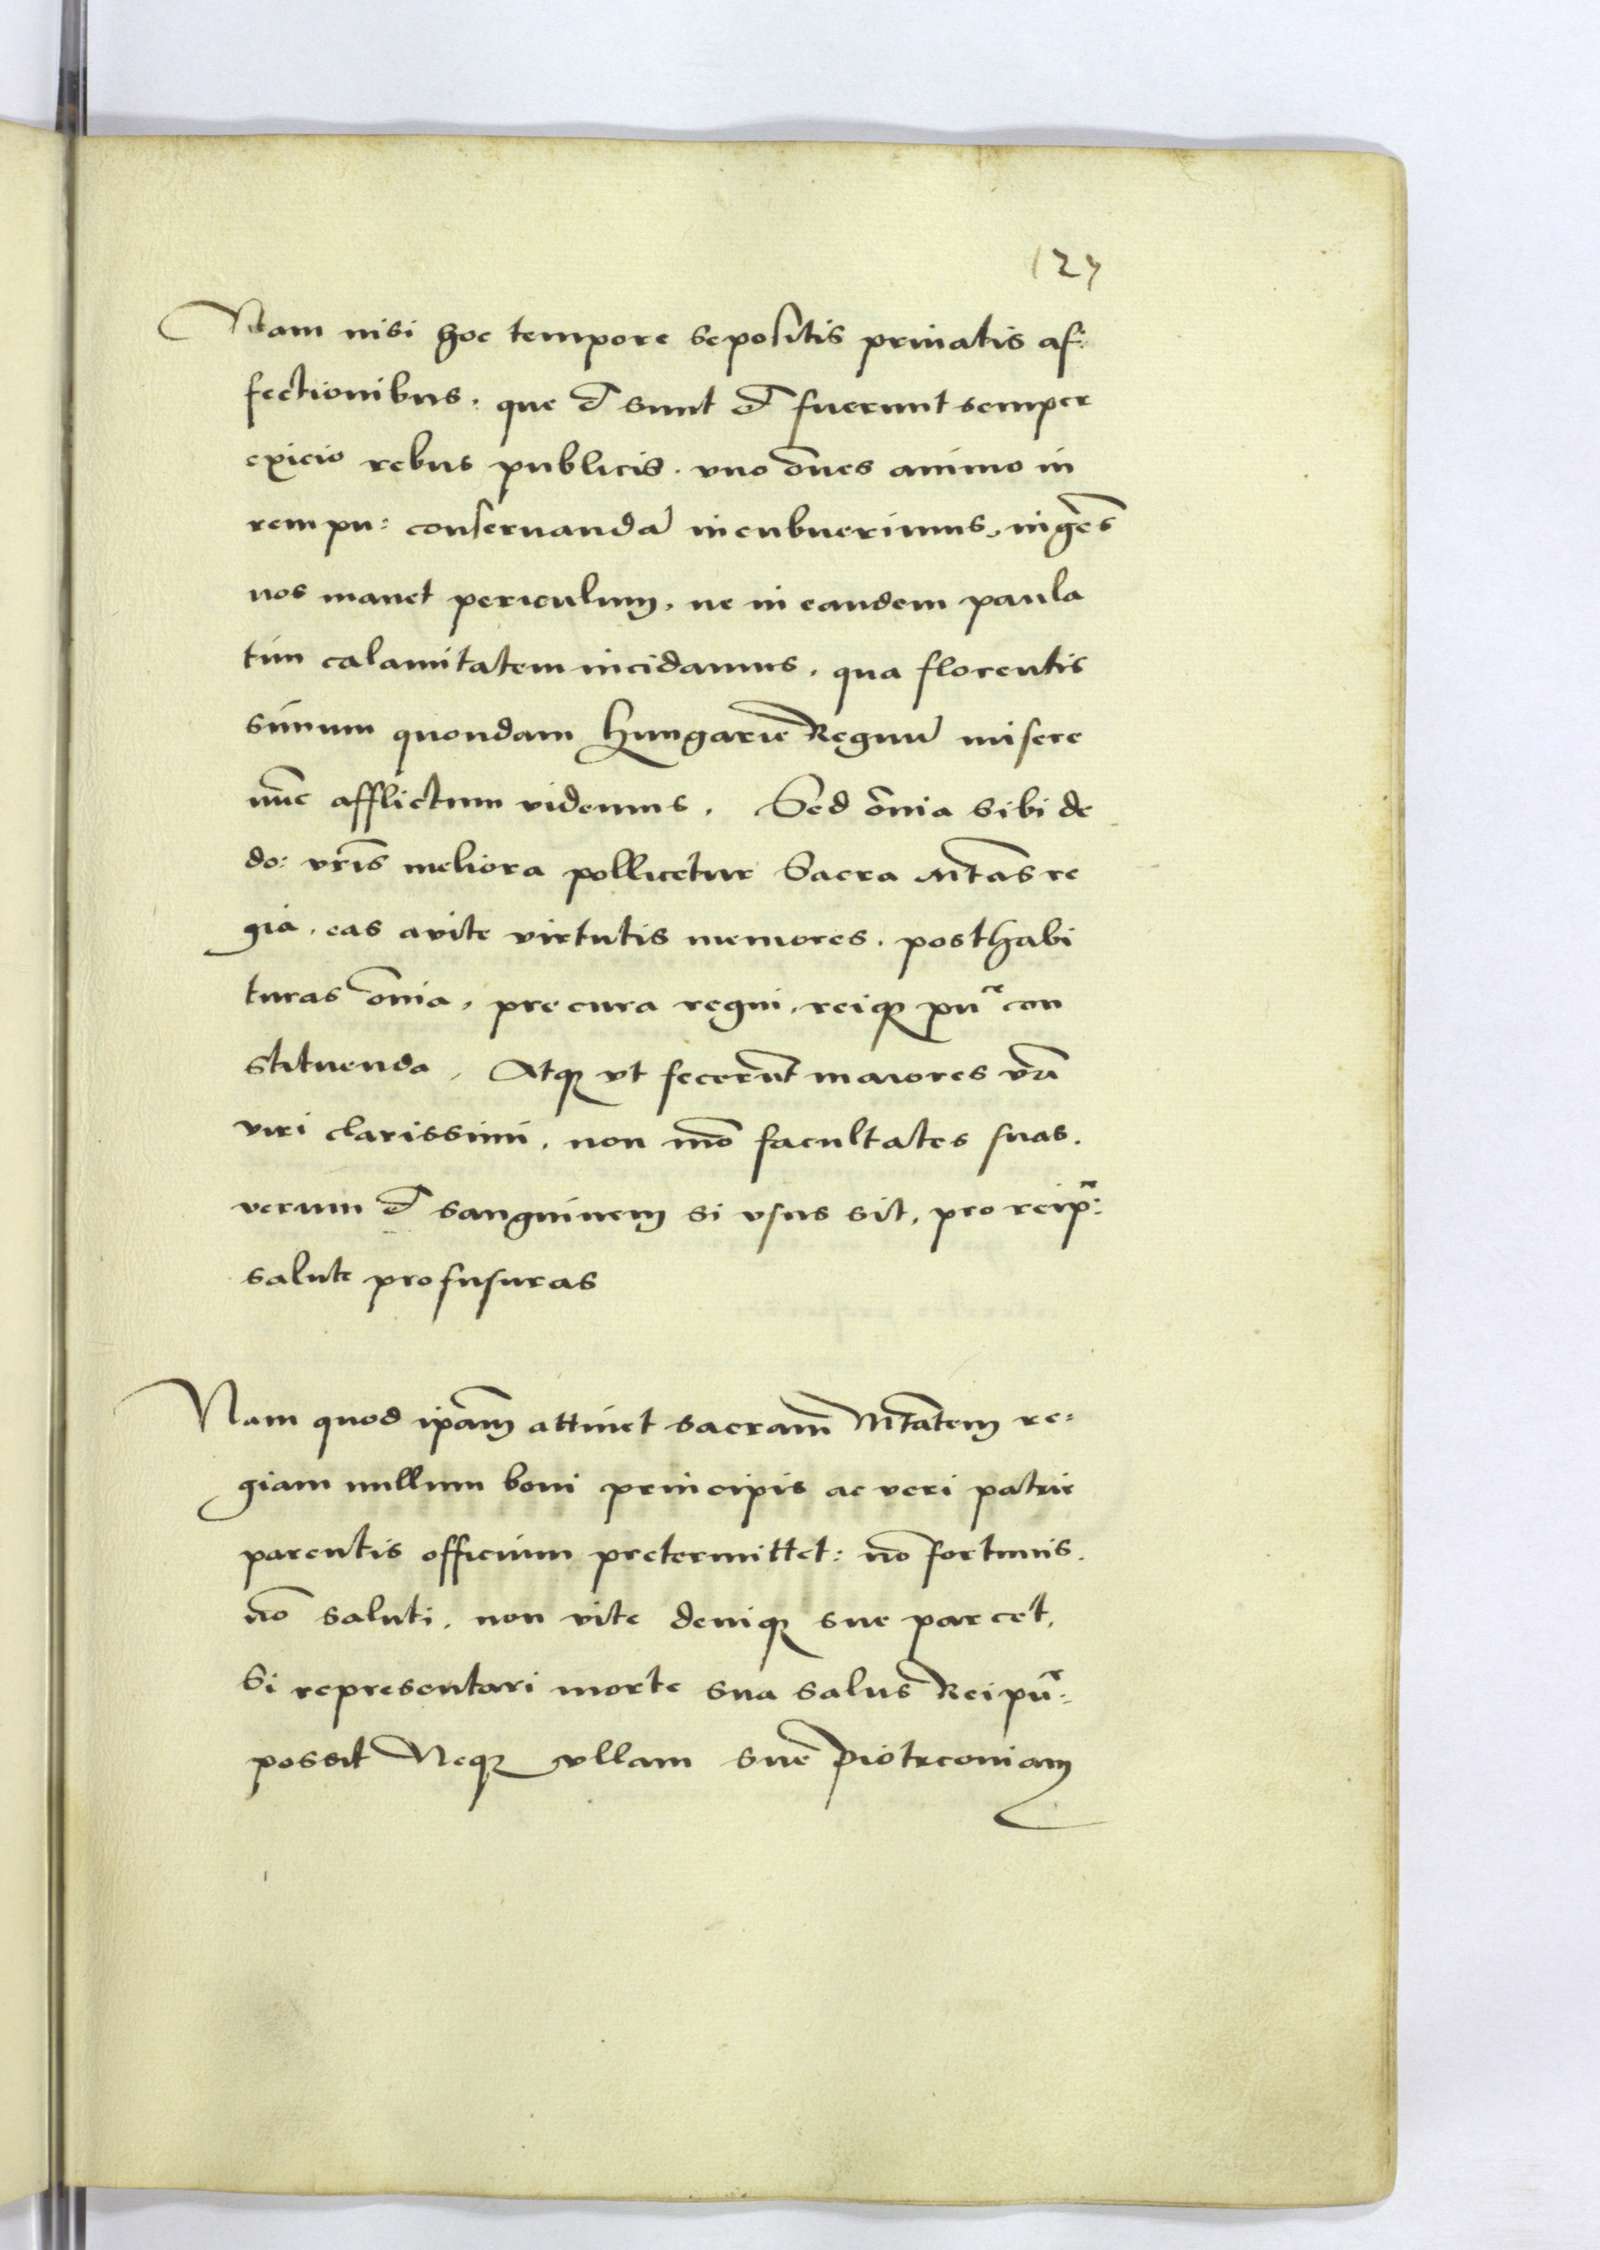 127
Nam nisi hoc tempore sepositis priuatis af:
fectionibus. que et sunt et fuerunt semper
exicio rebus publicis. vno om̄es animo in
rempu: conseruandā incubuerimus, ingēs
nos manet periculum, ne in eandem paula
tim calamitatem incidamus, qua florentis
simum quondam Hungarie Regnū misere
nūc afflictum videmus. Sed om̄ia sibi de
do: vr̄is meliora pollicetur Sacra Mtas re
gia, eas avite virtutis memores, posthabi
turas om̄ia, pre cura regni, reiq̧ puce con
stituenda. Atq̧ vt fecerūt maiores vr̄i
viri clarissimi, non mō facultates suas.
verum et sanguinem si vsus sit, pro reip:
salute profusuras
Nam quod ip̄am attinet sacram Mtatem re:
giam nullum boni principis ac veri patrie
parentis officium pretermittet: nō fortunis.
nō saluti, non vite deniq̧ sue parcet,
Si representari morte sua salus Reipu:
possit Neq̧ vllam sue Piotrconiam